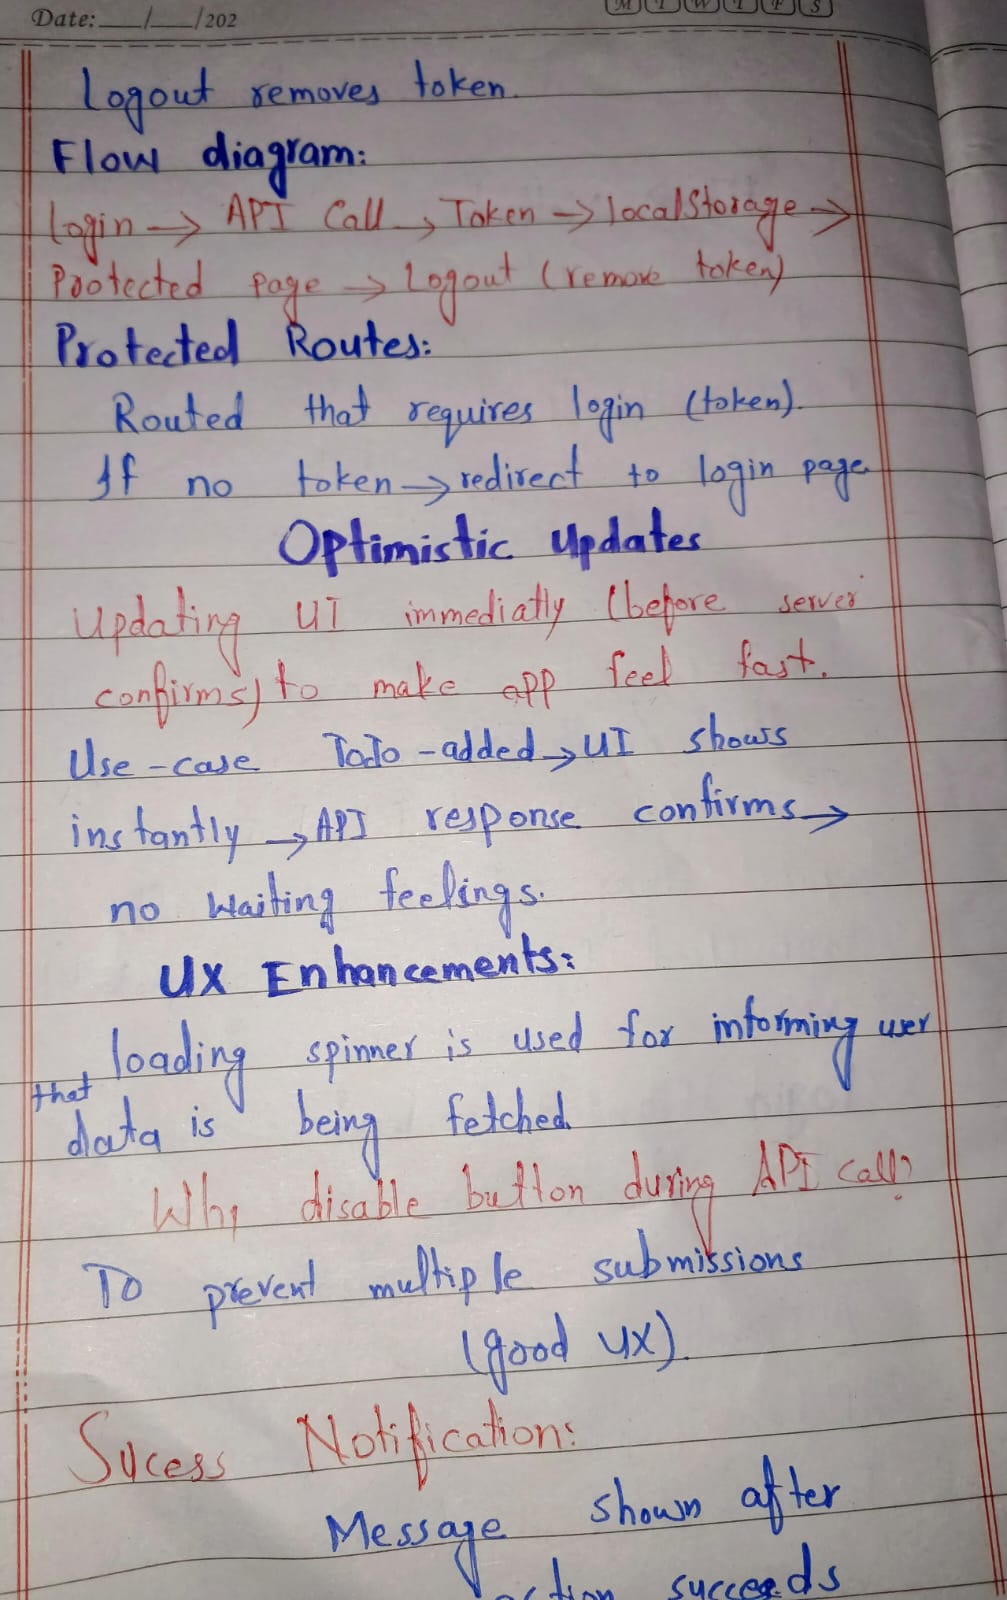 Date: __/__/202
M T W T F S
Logout removes token.
Flow diagram:
Login → API Call → Token → localStorage →
Protected page → Logout (remove token)
Protected Routes:
Routed that requires login (token).
If no token → redirect to login page
Optimistic Updates
Updating UI immediatly (before server
confirms) to make app feel fast.
Use-case ToDo-added → UI shows
instantly → API response confirms →
no waiting feelings.
UX Enhancements:
loading spinner is used for informing user
that data is being fetched
Why disable button during API call?
To prevent multiple submissions
(good UX).
Sucess Notification:
Message shown after
action succeeds